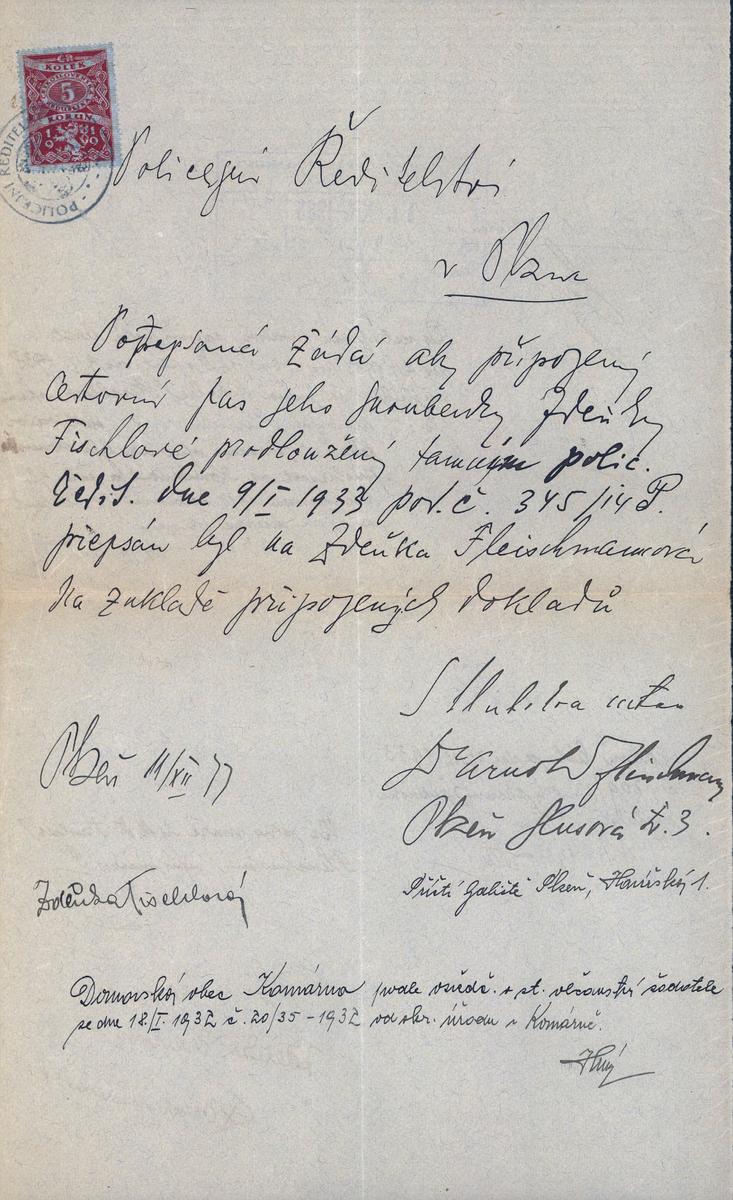 KOLEK
5
KORUN
1919
POLICEJNÍ ŘEDITEL
Policejní Ředitelství
v Plzni
Podepsaná žádá aby připojený
cestovní pas jeho snoubenky Zdeňky
Fischlové prodloužený tamním polic.
ředit. dne 9/I 1933 pod. č. 345/14 P.
přepsán byl na Zdeňka Fleischmannová
na základě připojených dokladů
S úctou
Plzeň 11/XII 33
Dr Arnold Fleischmann
Plzeň Husová tř. 3.
Zdeňka Fischlová
Příští Plzeň, 1.
Domovská obec Komárno podle osvědč. o st. občanství žadatele
ze dne 18/I. 1932 č. 20/35-1932 od okr. úřadu v Komárně.